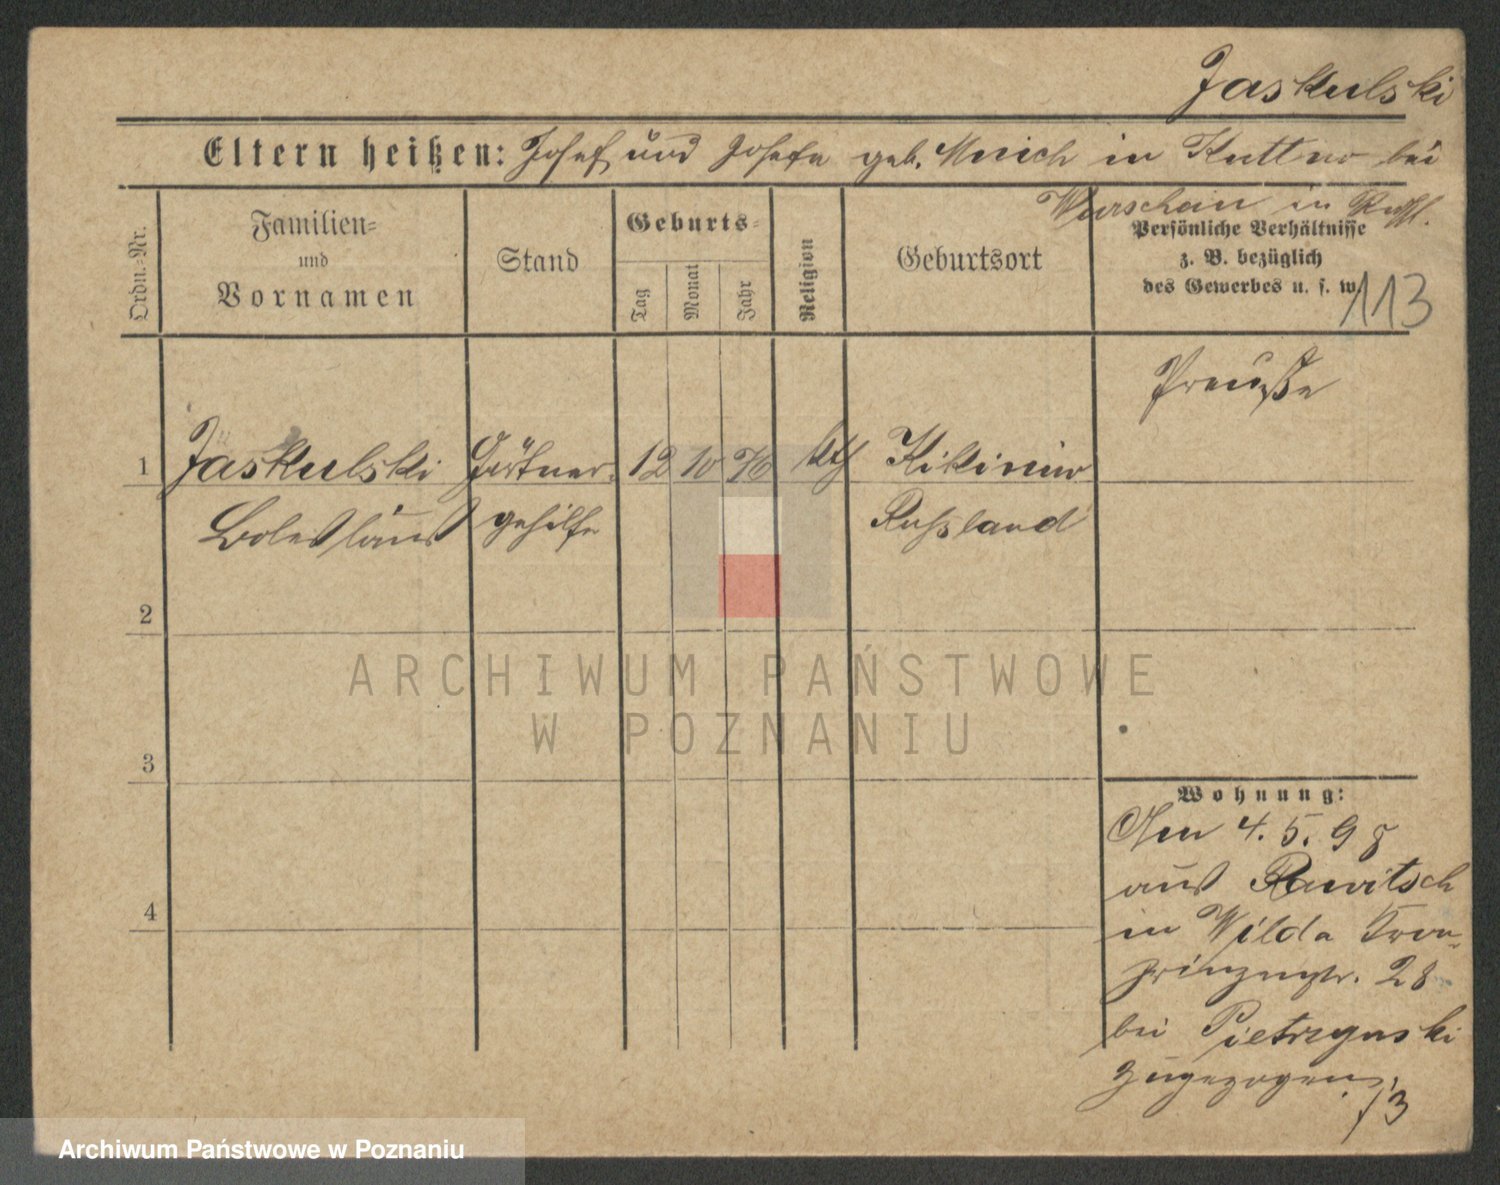 Jaskulski
Eltern heißen: Josef und Josefa geb. Msich in Kuttno bei
Warschau in Rußl.
Ordn.-Nr.
Familien-
und
Vornamen
Stand
Geburts-
Tag
Monat
Jahr
Religion
Geburtsort
Persönliche Verhältnisse
z. B. bezüglich
des Gewerbes u. s. w.
113
Preuße
1 Jaskulski Gärtner- 12 10 76 kth
Boleslaus gehilfe Russland
2
3
4
Wohnung:
Am 4. 5. 98
aus Rawitsch
in Wilda Kron-
prinzenstr. 28
bei Pietrzynski
zugezogen.
/3
ARCHIWUM PAŃSTWOWE
W POZNANIU
Archiwum Państwowe w Poznaniu